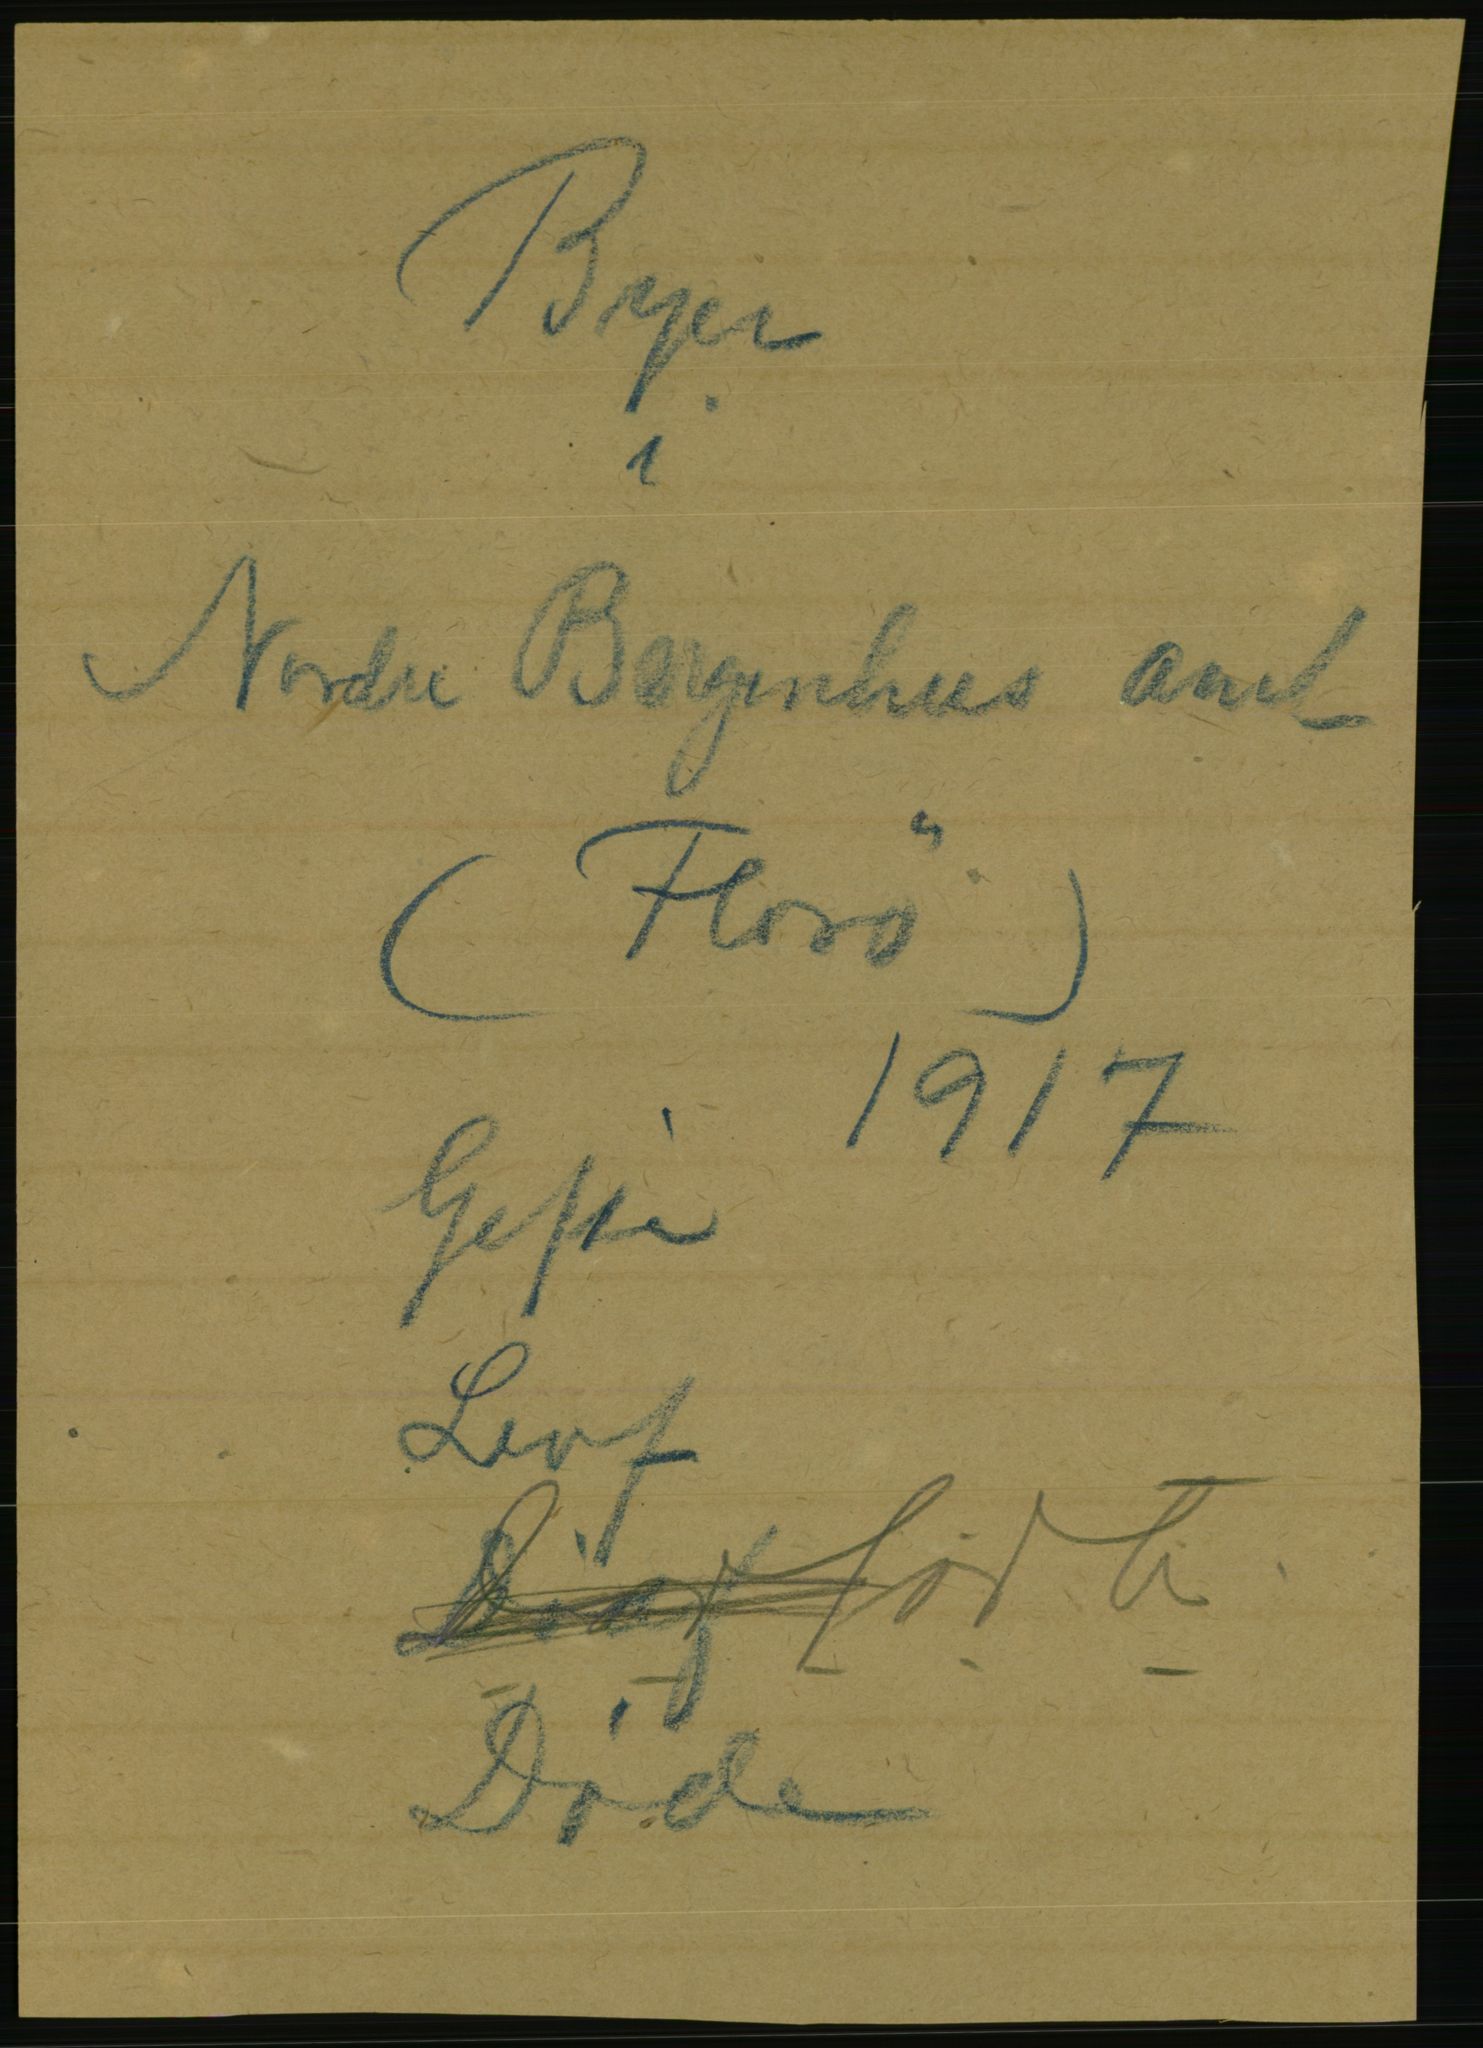 Byer
i
Nordre Bergenhus amt
(Florö)
1917
Gifte
Levf
Dødf født
Döde